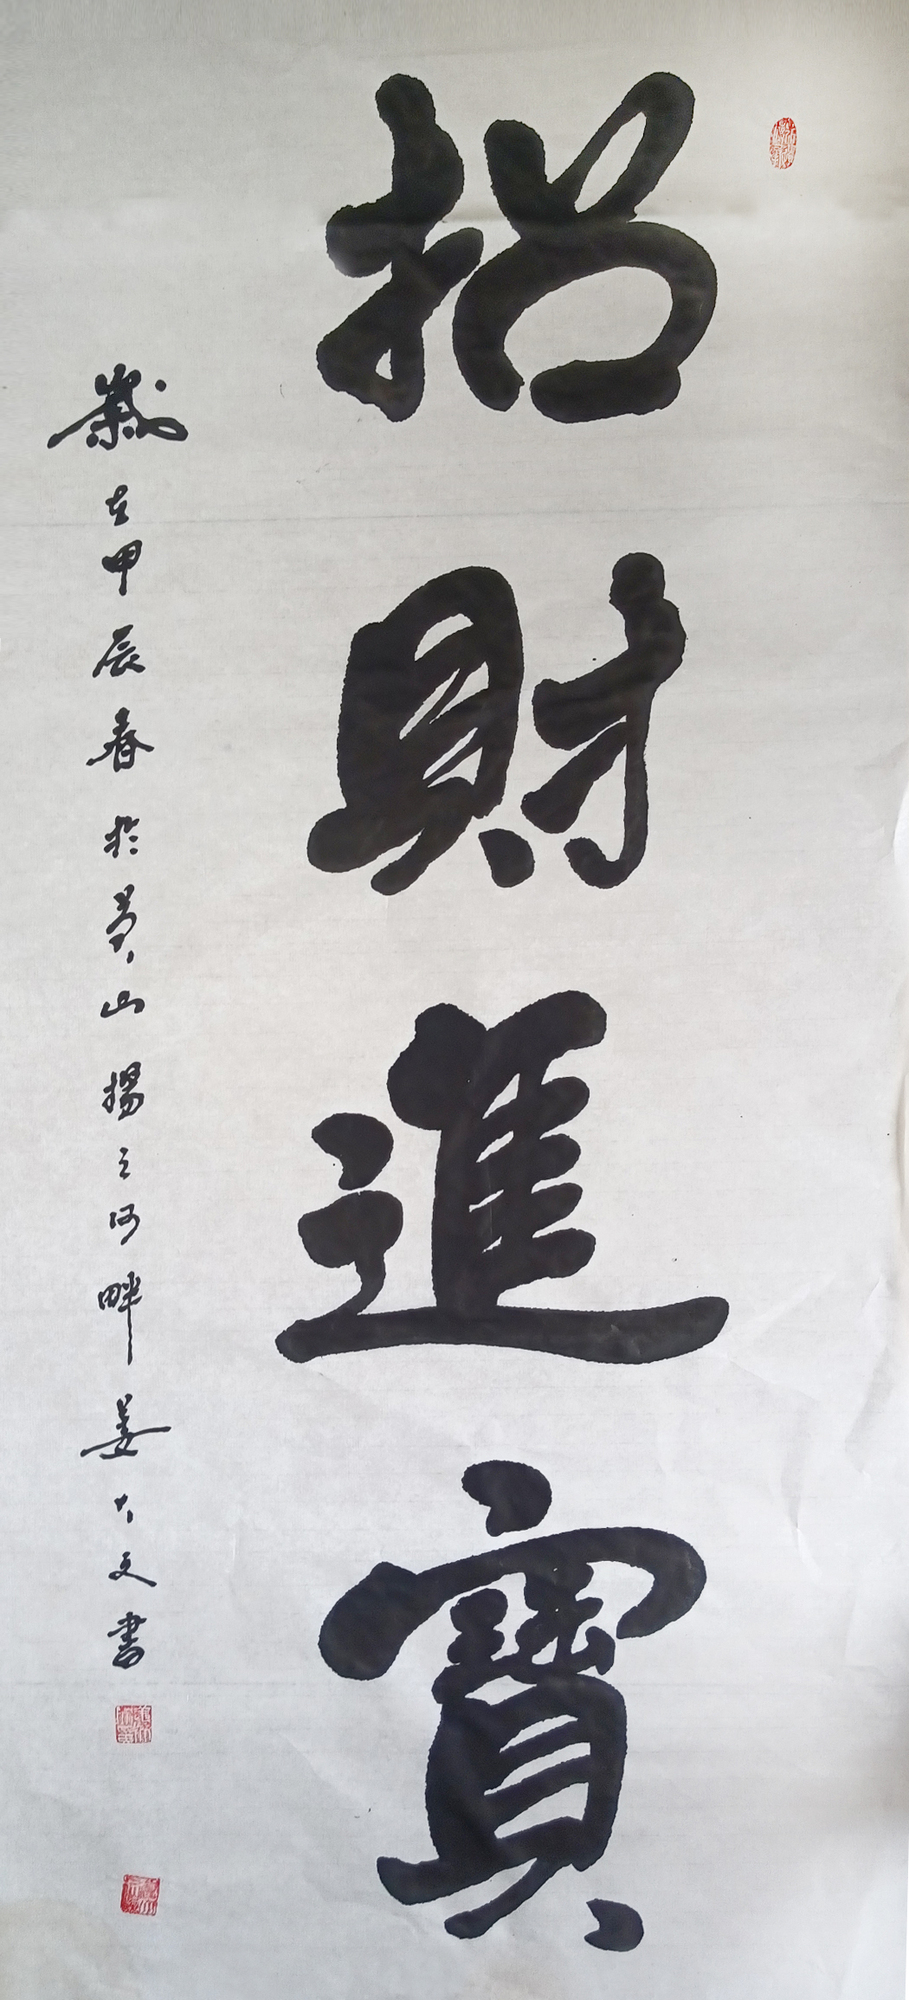 招財進寶
歲在甲辰春於黄山揚之河畔姜大文書